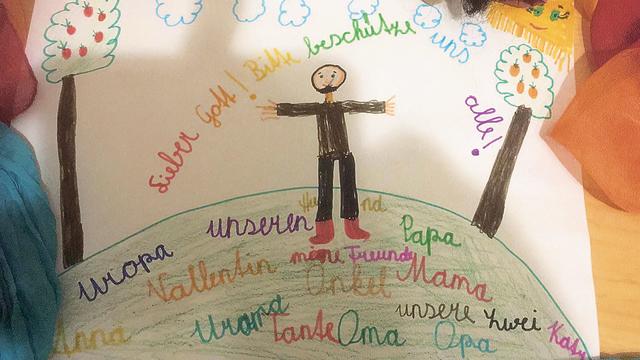 Lieber Gott! Bitte beschütze uns alle!
unseren Hund Papa
Uropa Vallentin meine Freunde Onkel Mama
Anna Uroma Tante Oma unsere zwei Opa